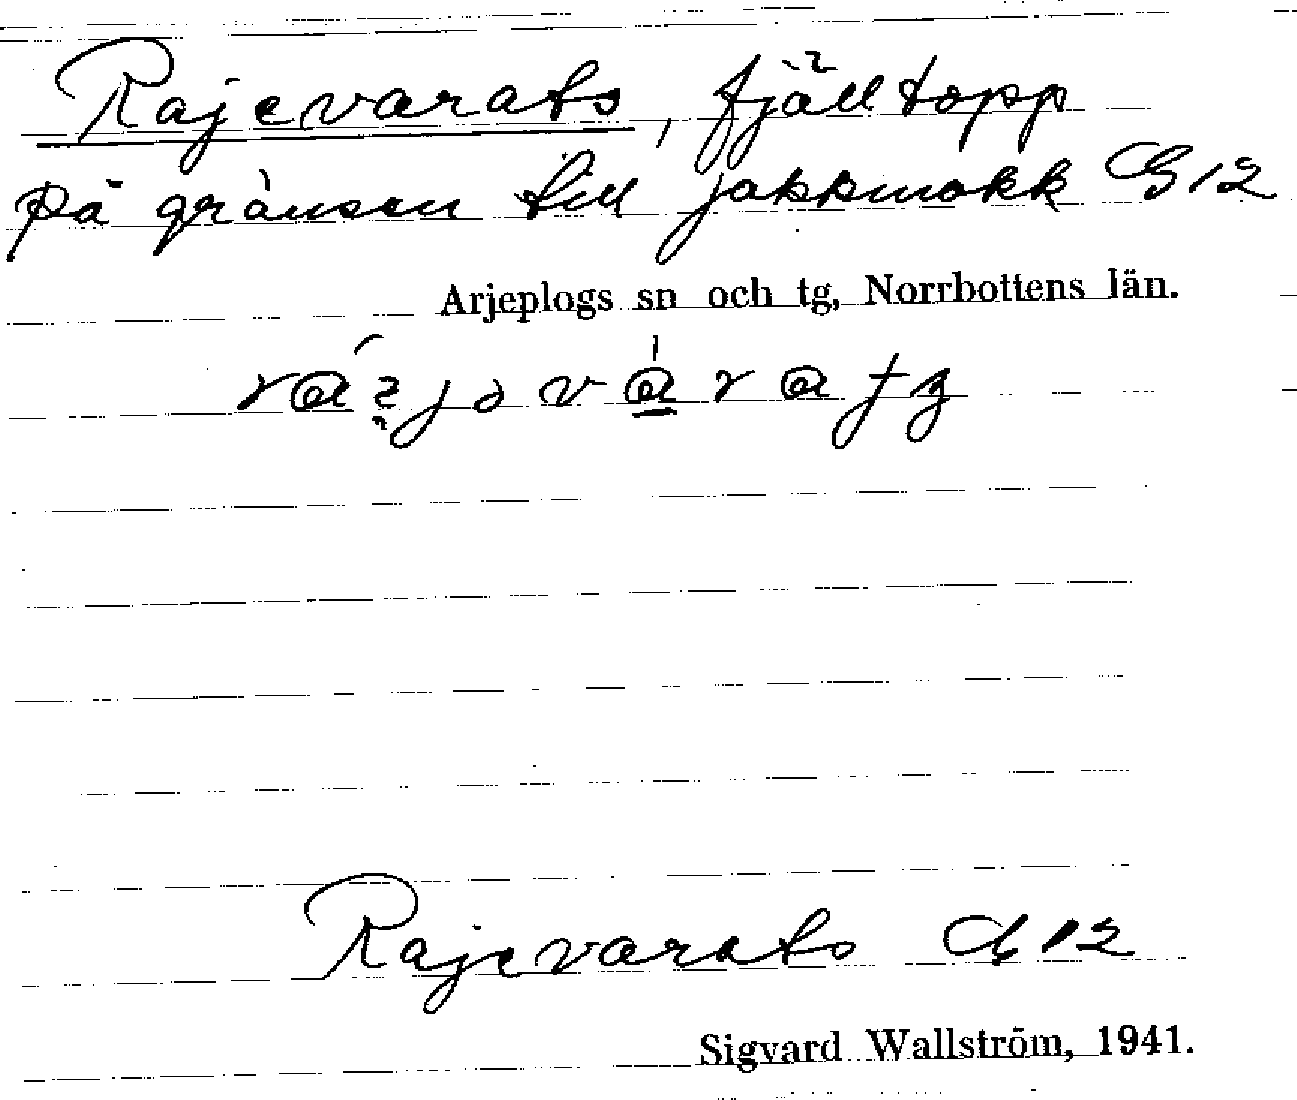 Rajevarats, fjälltopp
på gränsen till Jokkmokk G12
Arjeplogs sn och tg, Norrbottens län.
Rajevarats G12
Sigvard Wallström, 1941.